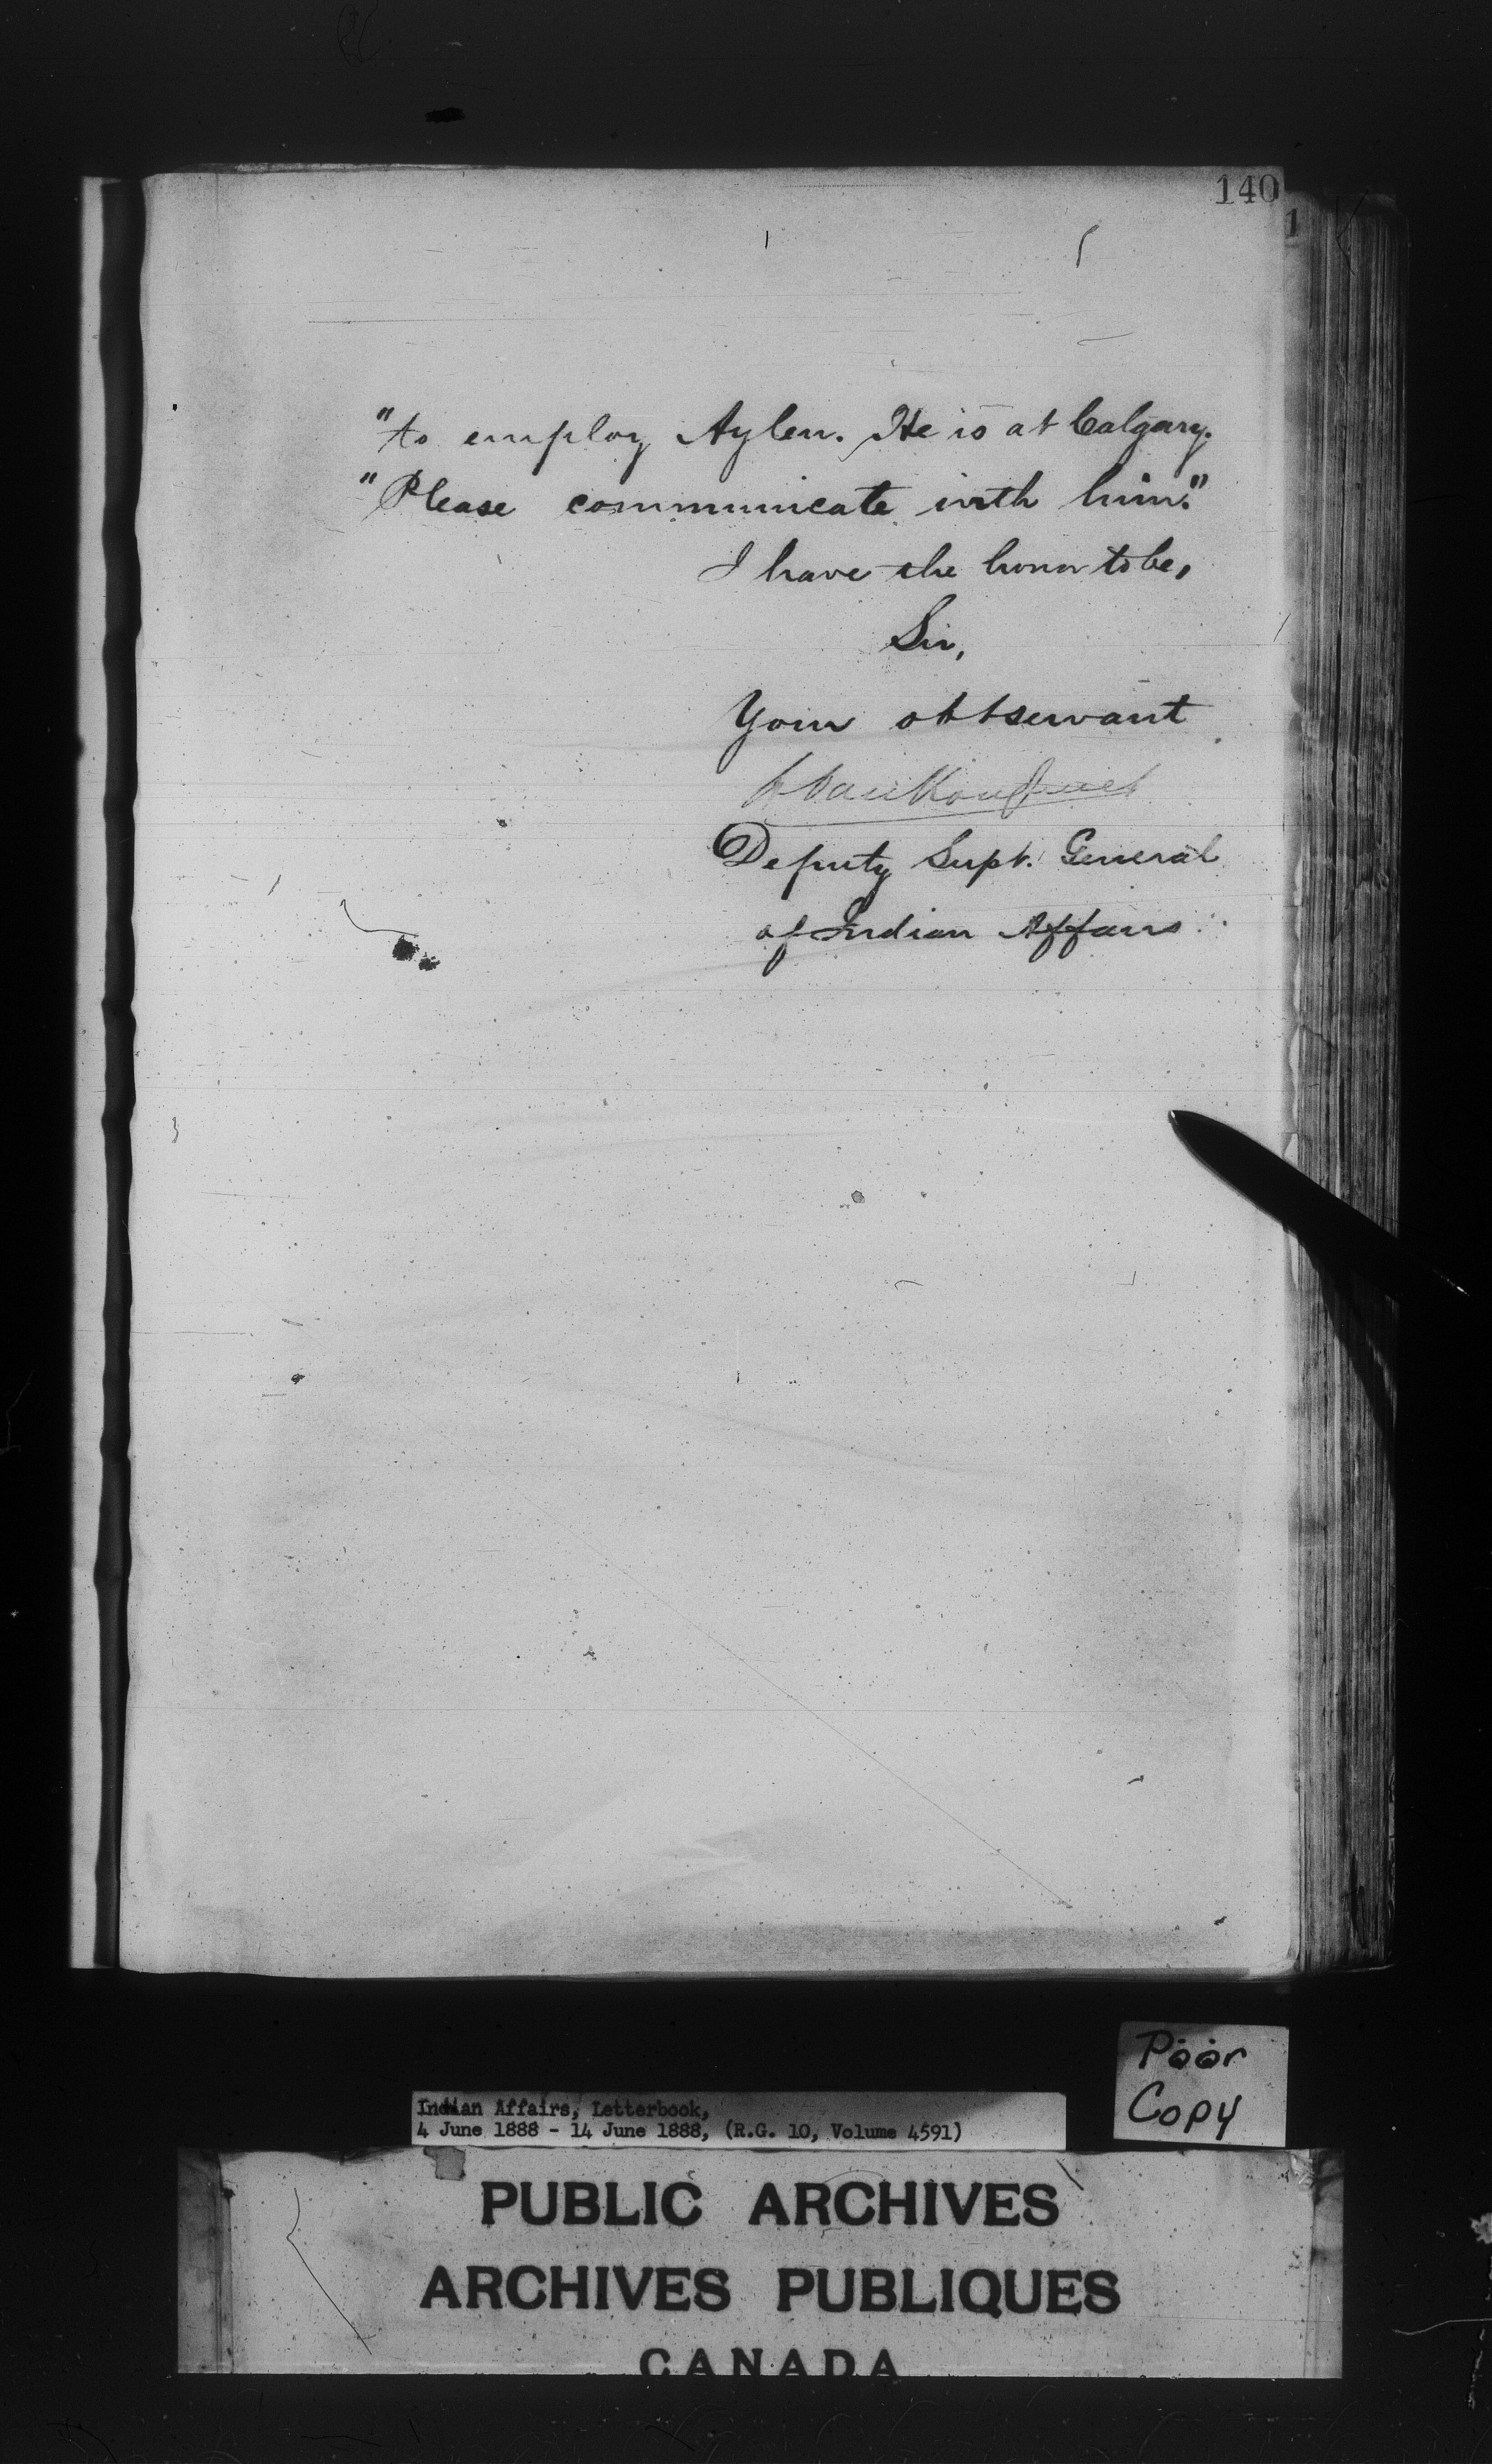 140
1
"to employ Aylen. He is at Calgary.
"Please communicate with him."
I have the honor to be,
Sir,
Your obt servant
L. VanKoughnet
Deputy Supt. General
of Indian Affairs
Poor
Copy
Indian Affairs, Letterbook,
4 June 1888 - 14 June 1888, (R.G. 10, Volume 4591)
PUBLIC ARCHIVES
ARCHIVES PUBLIQUES
CANADA